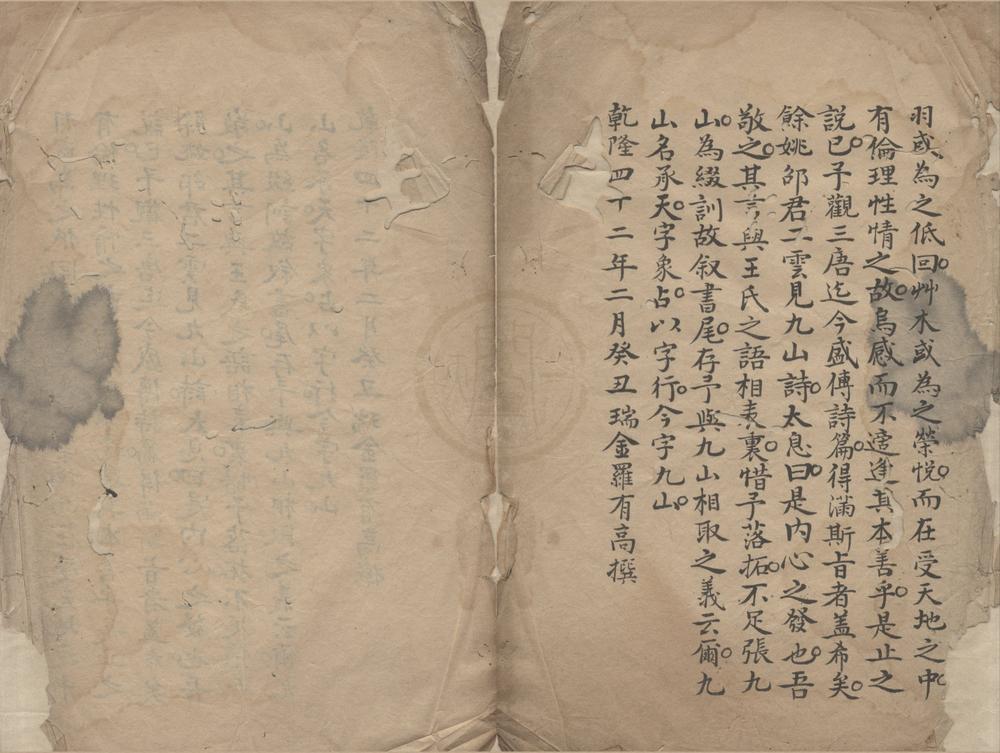 羽或為之低回。艸木或為之榮悅。而在受天地之中。
有倫理性情之故。烏感而不適逢其本善乎。是止之
說已。予觀三唐迄今盛傳詩篇。得滿斯旨者蓋希矣。
餘姚邵君二雲見九山詩。太息曰。是內心之發也。吾
敬之。其言與王氏之語相表裏。惜予落拓。不足張九
山。為綴訓故叙書尾。存予與九山相取之義云爾。九
山名承天。字象占。以字行。今字九山。
乾隆四十二年二月癸丑瑞金羅有高撰